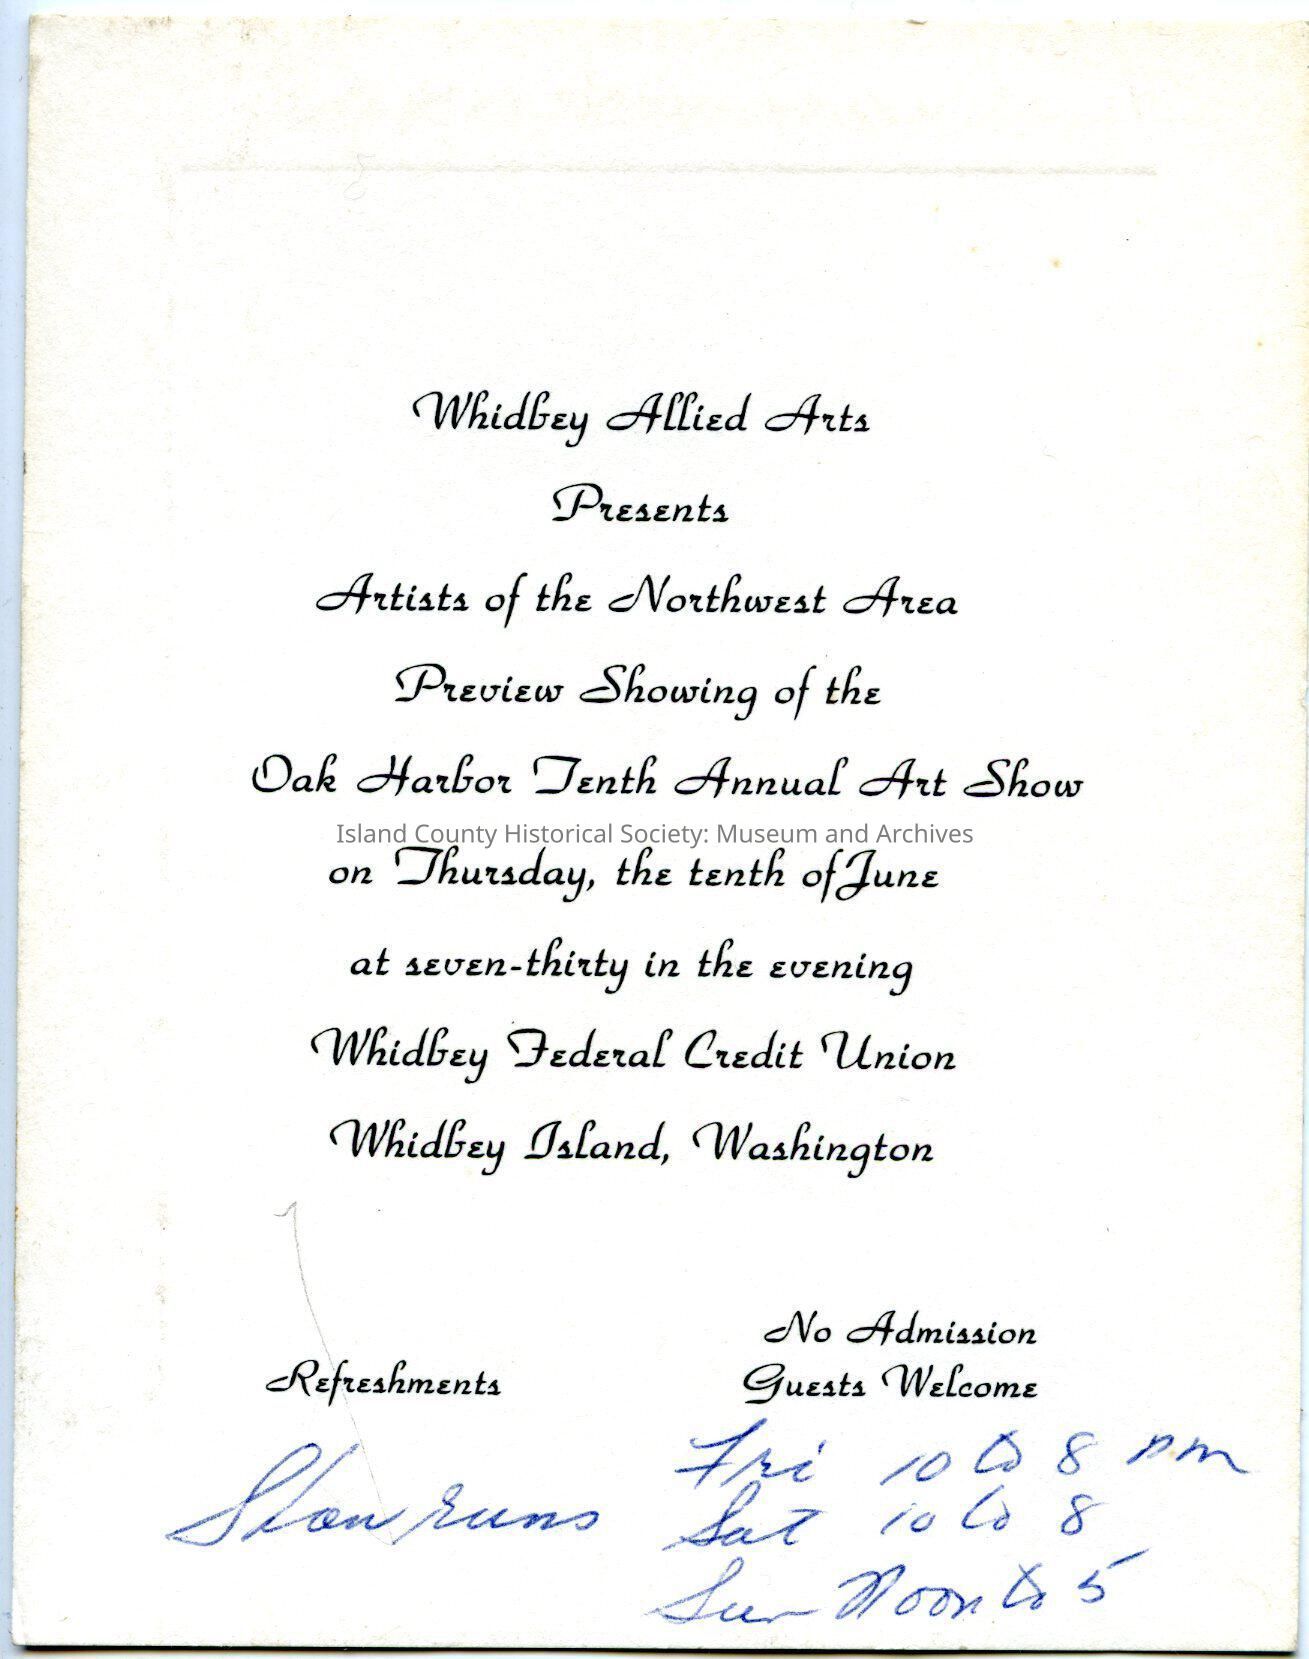 Whidbey Allied Arts
Presents
Artists of the Northwest Area
Preview Showing of the
Oak Harbor Tenth Annual Art Show
Island County Historical Society: Museum and Archives
on Thursday, the tenth of June
at seven-thirty in the evening
Whidbey Federal Credit Union
Whidbey Island, Washington
No Admission
Refreshments
Guests Welcome
Fri 10 to 8 pm
Show runs
Sat 10 to 8
Sun Noon to 5